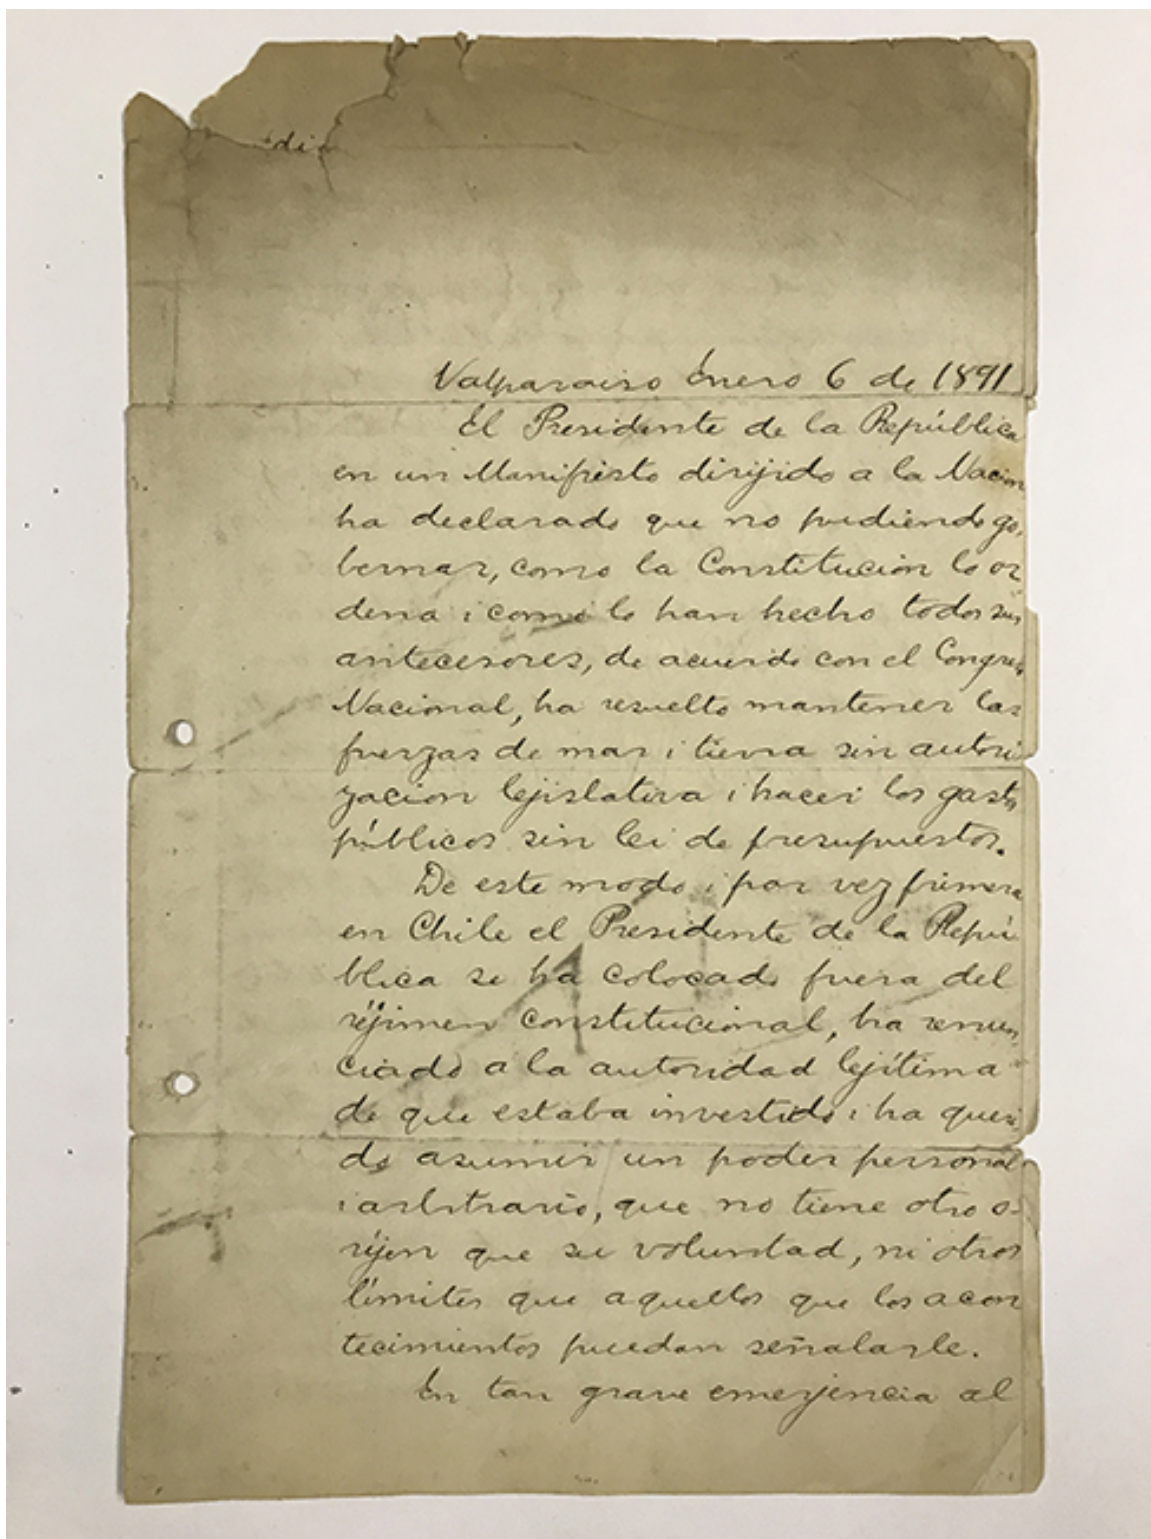 di
Valparaiso Enero 6 de 1891
El Presidente de la República
en un Manifiesto dirijido a la Nacion
ha declarado que no pudiendo go-
bernar, como la Constitución lo or
dena i como lo han hecho todos sus
antecesores, de acuerdo con el Congreso
Nacional, ha resuelto mantener las
fuerzas de mar i tierra sin autori
zacion lejislativa i hacer los gastos
públicos sin lei de presupuestos.
De este modo i por vez primera
en Chile el Presidente de la Repú
blica se ha colocado fuera del
réjimen constitucional, ha renun-
ciado a la autoridad lejítima
de que estaba investido i ha queri-
do asumir un poder personal
i arbitrario, que no tiene otro o-
ríjen que su voluntad, ni otros
límites que aquellos que los acon
tecimientos puedan señalarle.
En tan grave emerjencia al